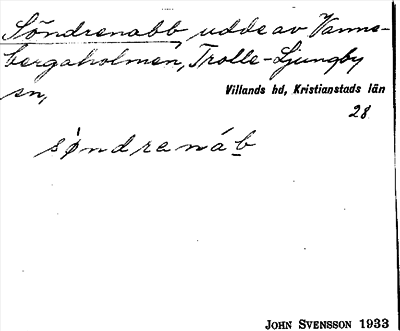 Söndrenabb, udde av Vanne-
bergaholmen, Trolle-Ljungby
sn,
Villands hd, Kristianstads län
28.
søndrenáb
JOHN SVENSSON 1933